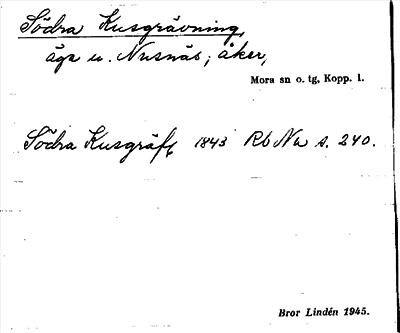 Södra Kusgrävning,
äga u. Nusnäs; åker,
Mora sn o. tg, Kopp. l.
Södra Kusgräft 1843 Rb Nu s. 240.
Bror Lindén 1945.